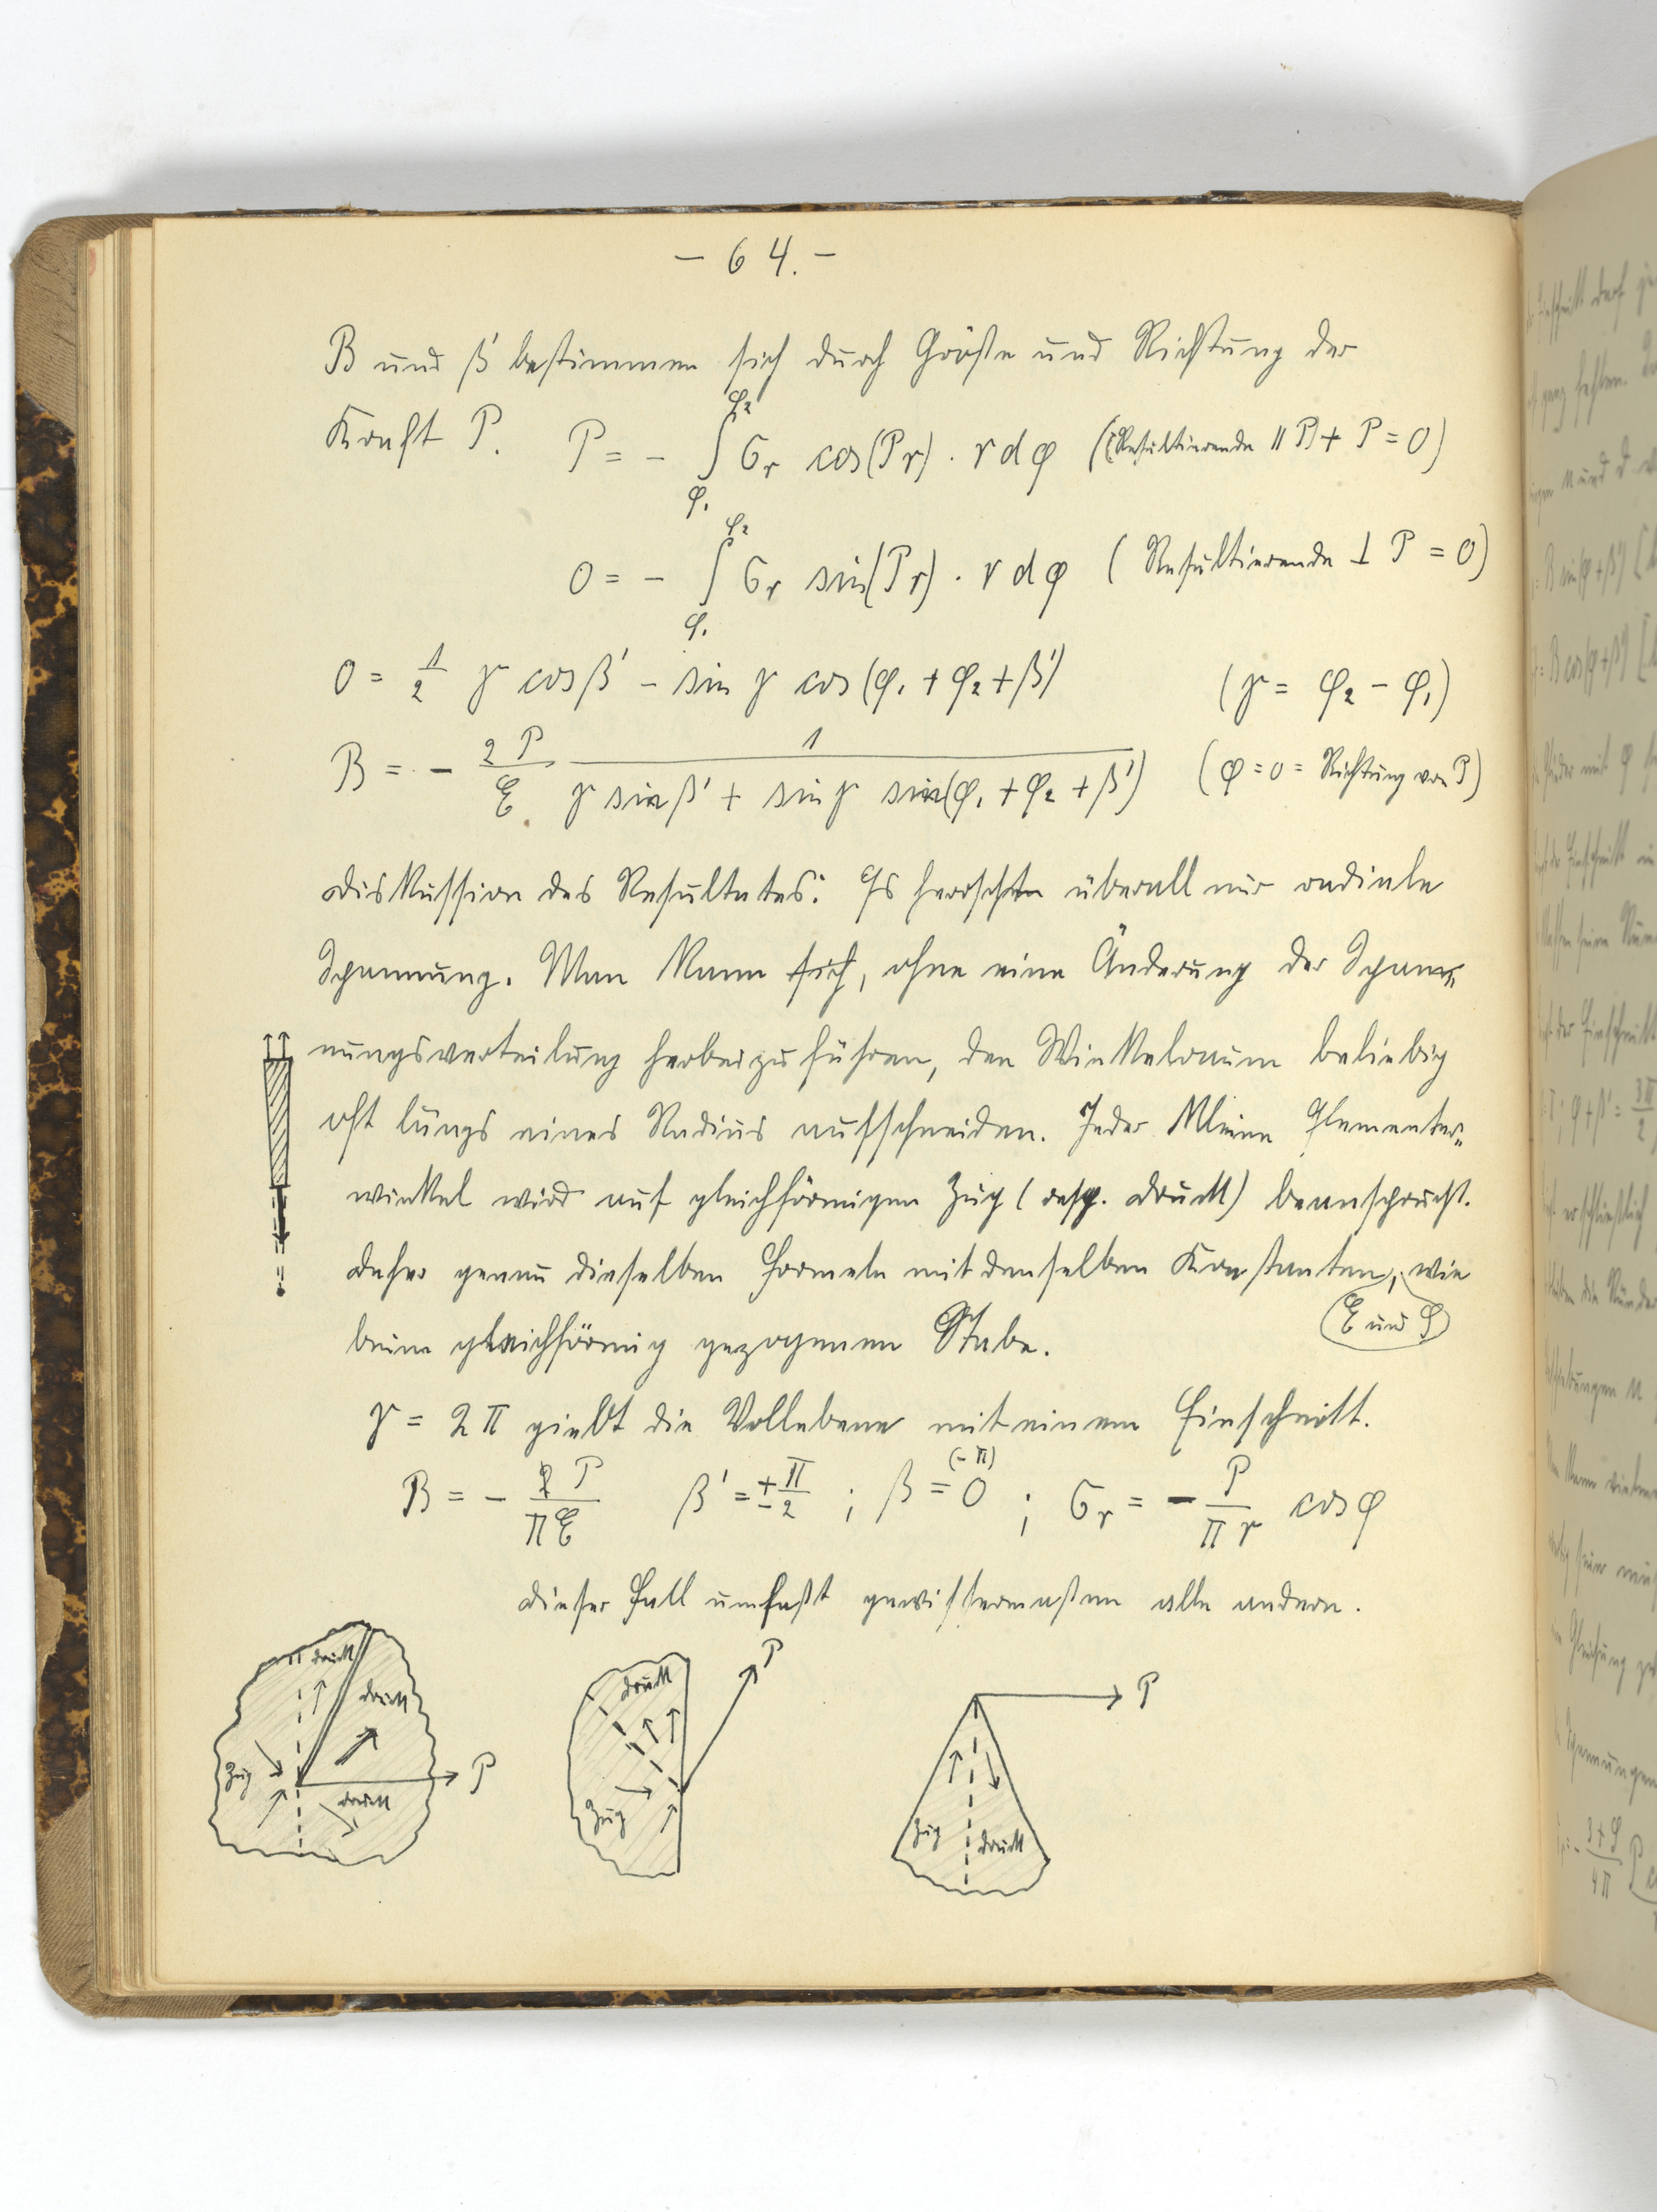 - 64. -
B und β' bestimmen sich durch Größe und Richtung der
Kraft P. P = - ∫_{φ₁}^{φ₂} σ_r cos(P r) · r dφ (Resultierende ∥ P + P = 0)
0 = - ∫_{φ₁}^{φ₂} σ_r sin(P r) · r dφ ( Resultierende ⊥ P = 0)
0 = 1/2 γ cos β' - sin γ cos (φ₁ + φ₂ + β') (γ = φ₂ - φ₁)
B = - 2P/E 1/(γ sin β' + sin γ sin(φ₁ + φ₂ + β')) (φ = 0 = Richtung von P)
Diskussion des Resultates: Es herrscht überall nur radiale
Spannung. Man kann sich, ohne eine Änderung der Span=
nungsverteilung herbeizuführen, den Winkelraum beliebig
oft längs eines Radius aufschneiden. Jeder kleine Elementar=
winkel wird auf gleichförmigen Zug (resp. Druck) beansprucht.
Daher genau dieselben Formeln mit denselben Konstanten, wie
E und
beim gleichförmig gezogenen Stabe.
γ = 2π giebt die Vollebene mit einem Einschnitt.
B = - P/πE β' = ± π/2 ; β = 0 (-π) ; σ_r = - P/πr cos φ
Dieser Fall umfaßt gewissermaßen alle andern.
Druck
Druck
Zug
P
Druck
Druck
P
Zug
P
Zug
Druck